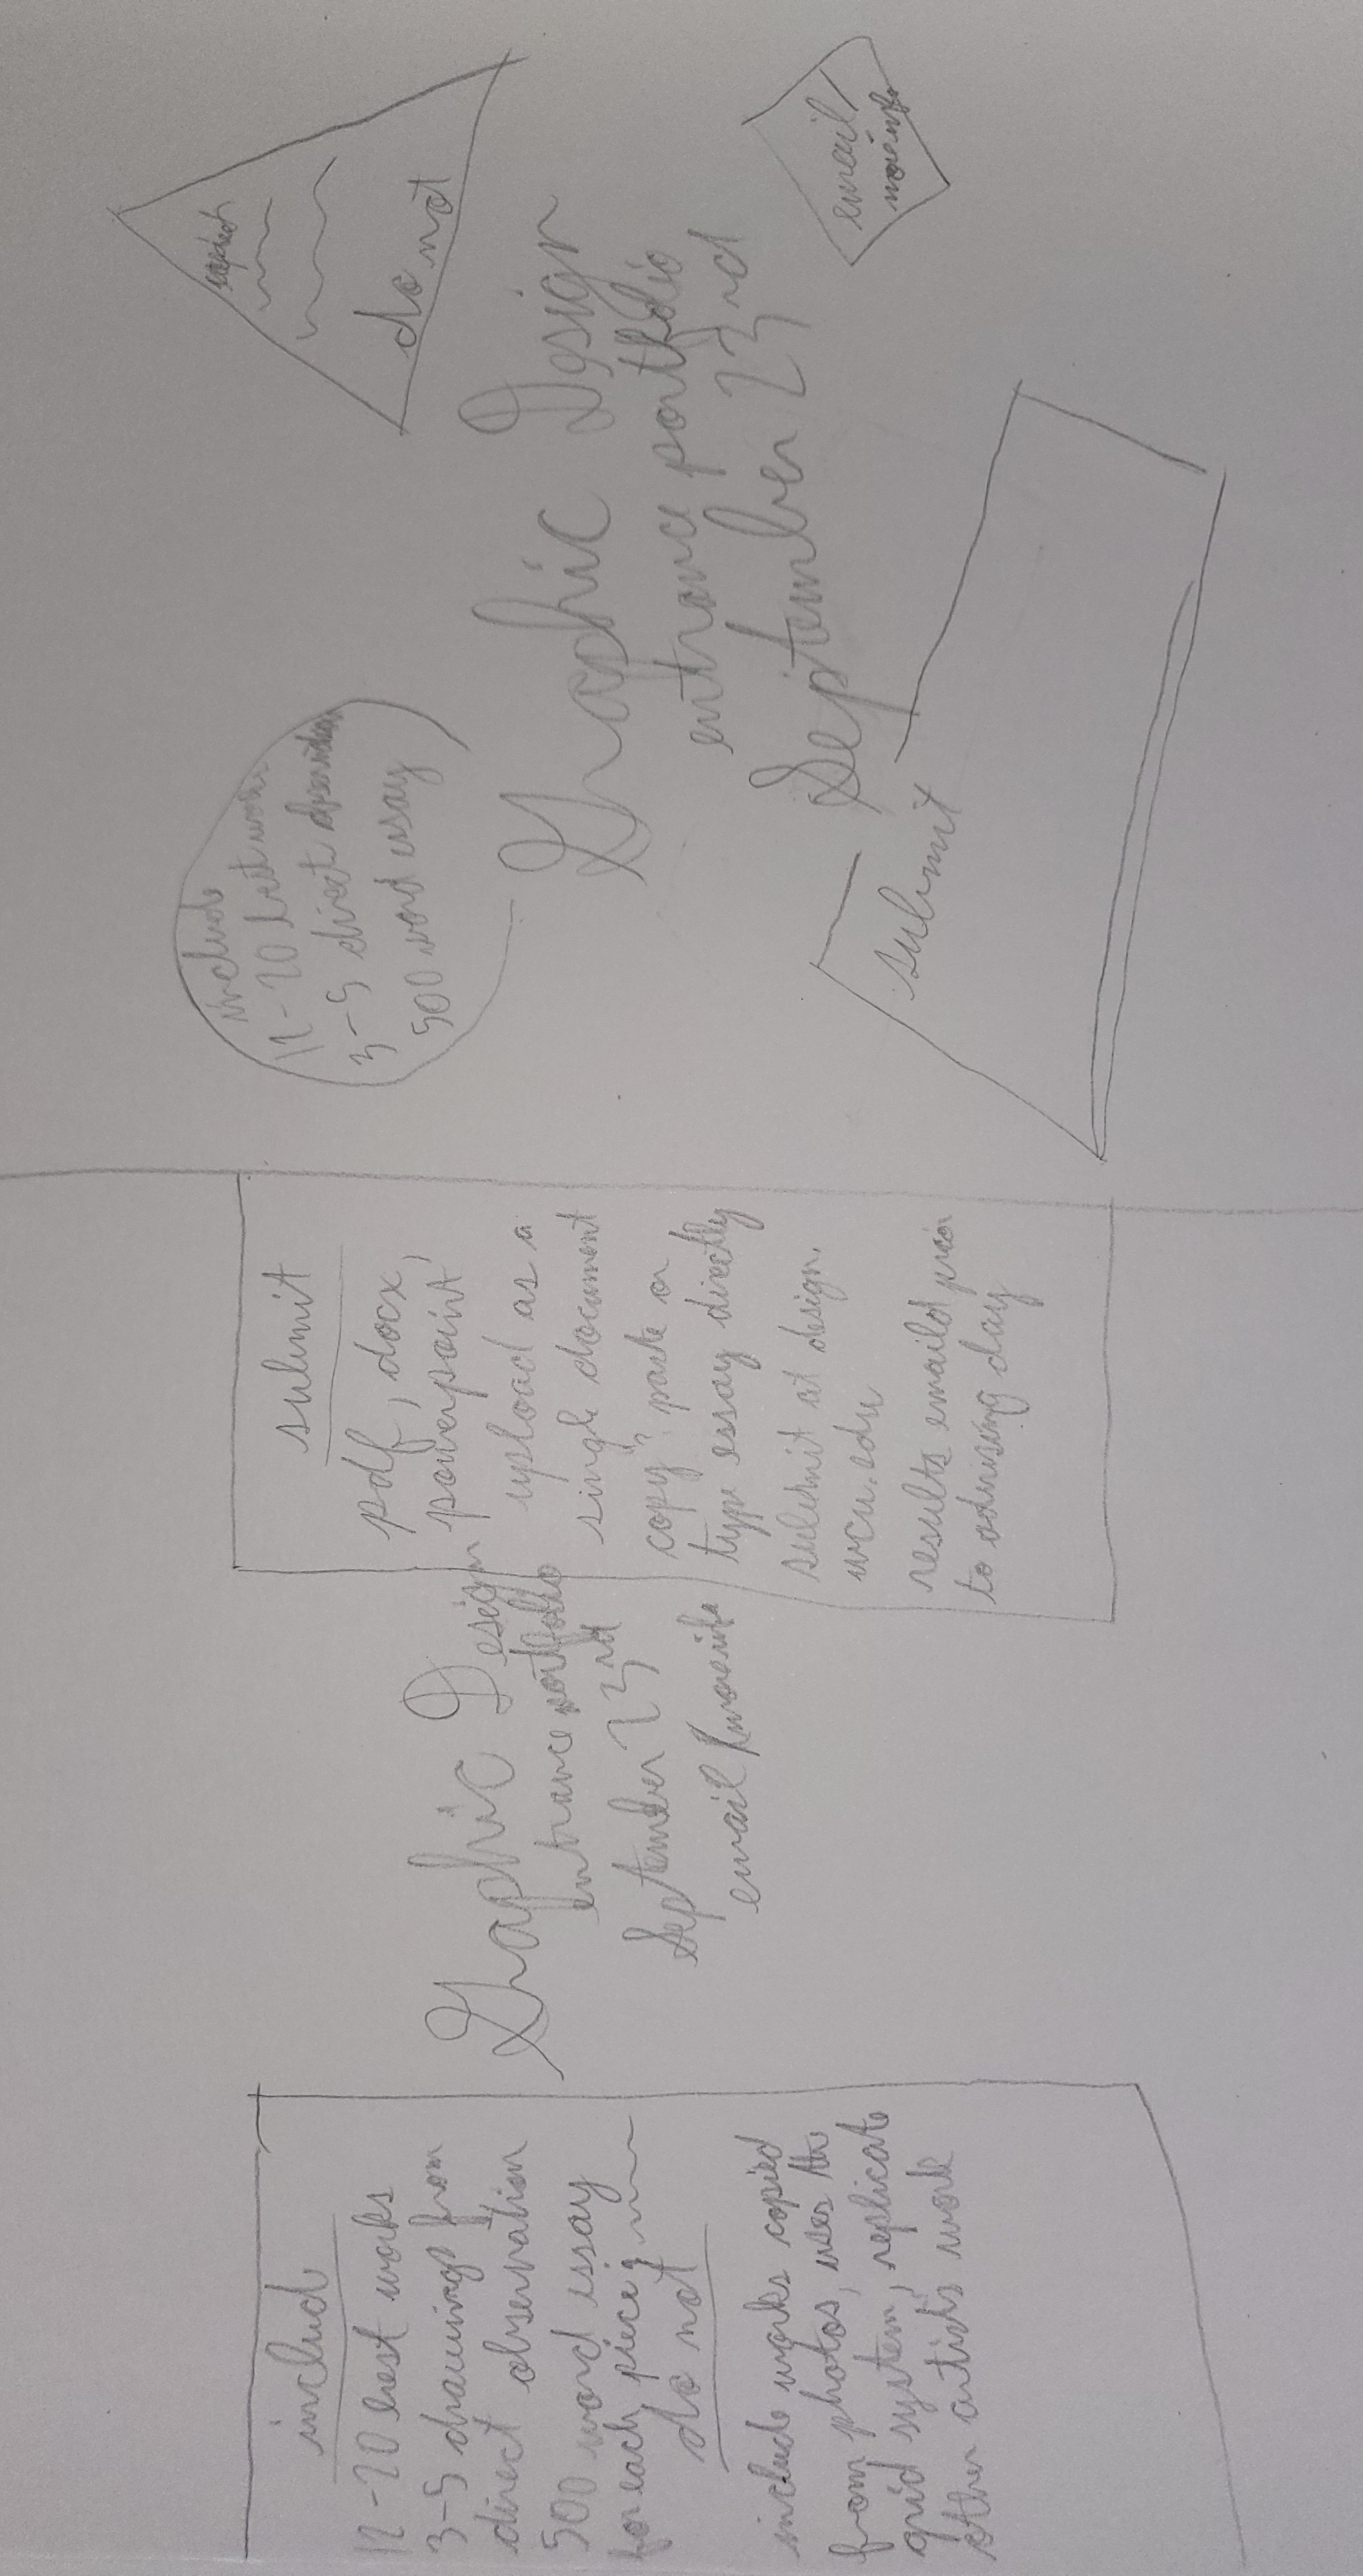 include
12-20 best works
3-5 drawings from
direct observation
500 word essay
for each piece,
do not
include works copied
from photos, uses the
grid system, replicate
other artists work
Graphic Design
entrance portfolio
September 23rd
email/moreinfo
submit
pdf, docx,
powerpoint,
upload as a
single document
copy, paste or
type essay directly
submit at design.
wcu.edu
results emailed prior
to advising day
include
12-20 best work
3-5 direct
500 word essay
copied
do not
Graphic Design
entrance portfolio
September 23rd
submit
email/
moreinfo